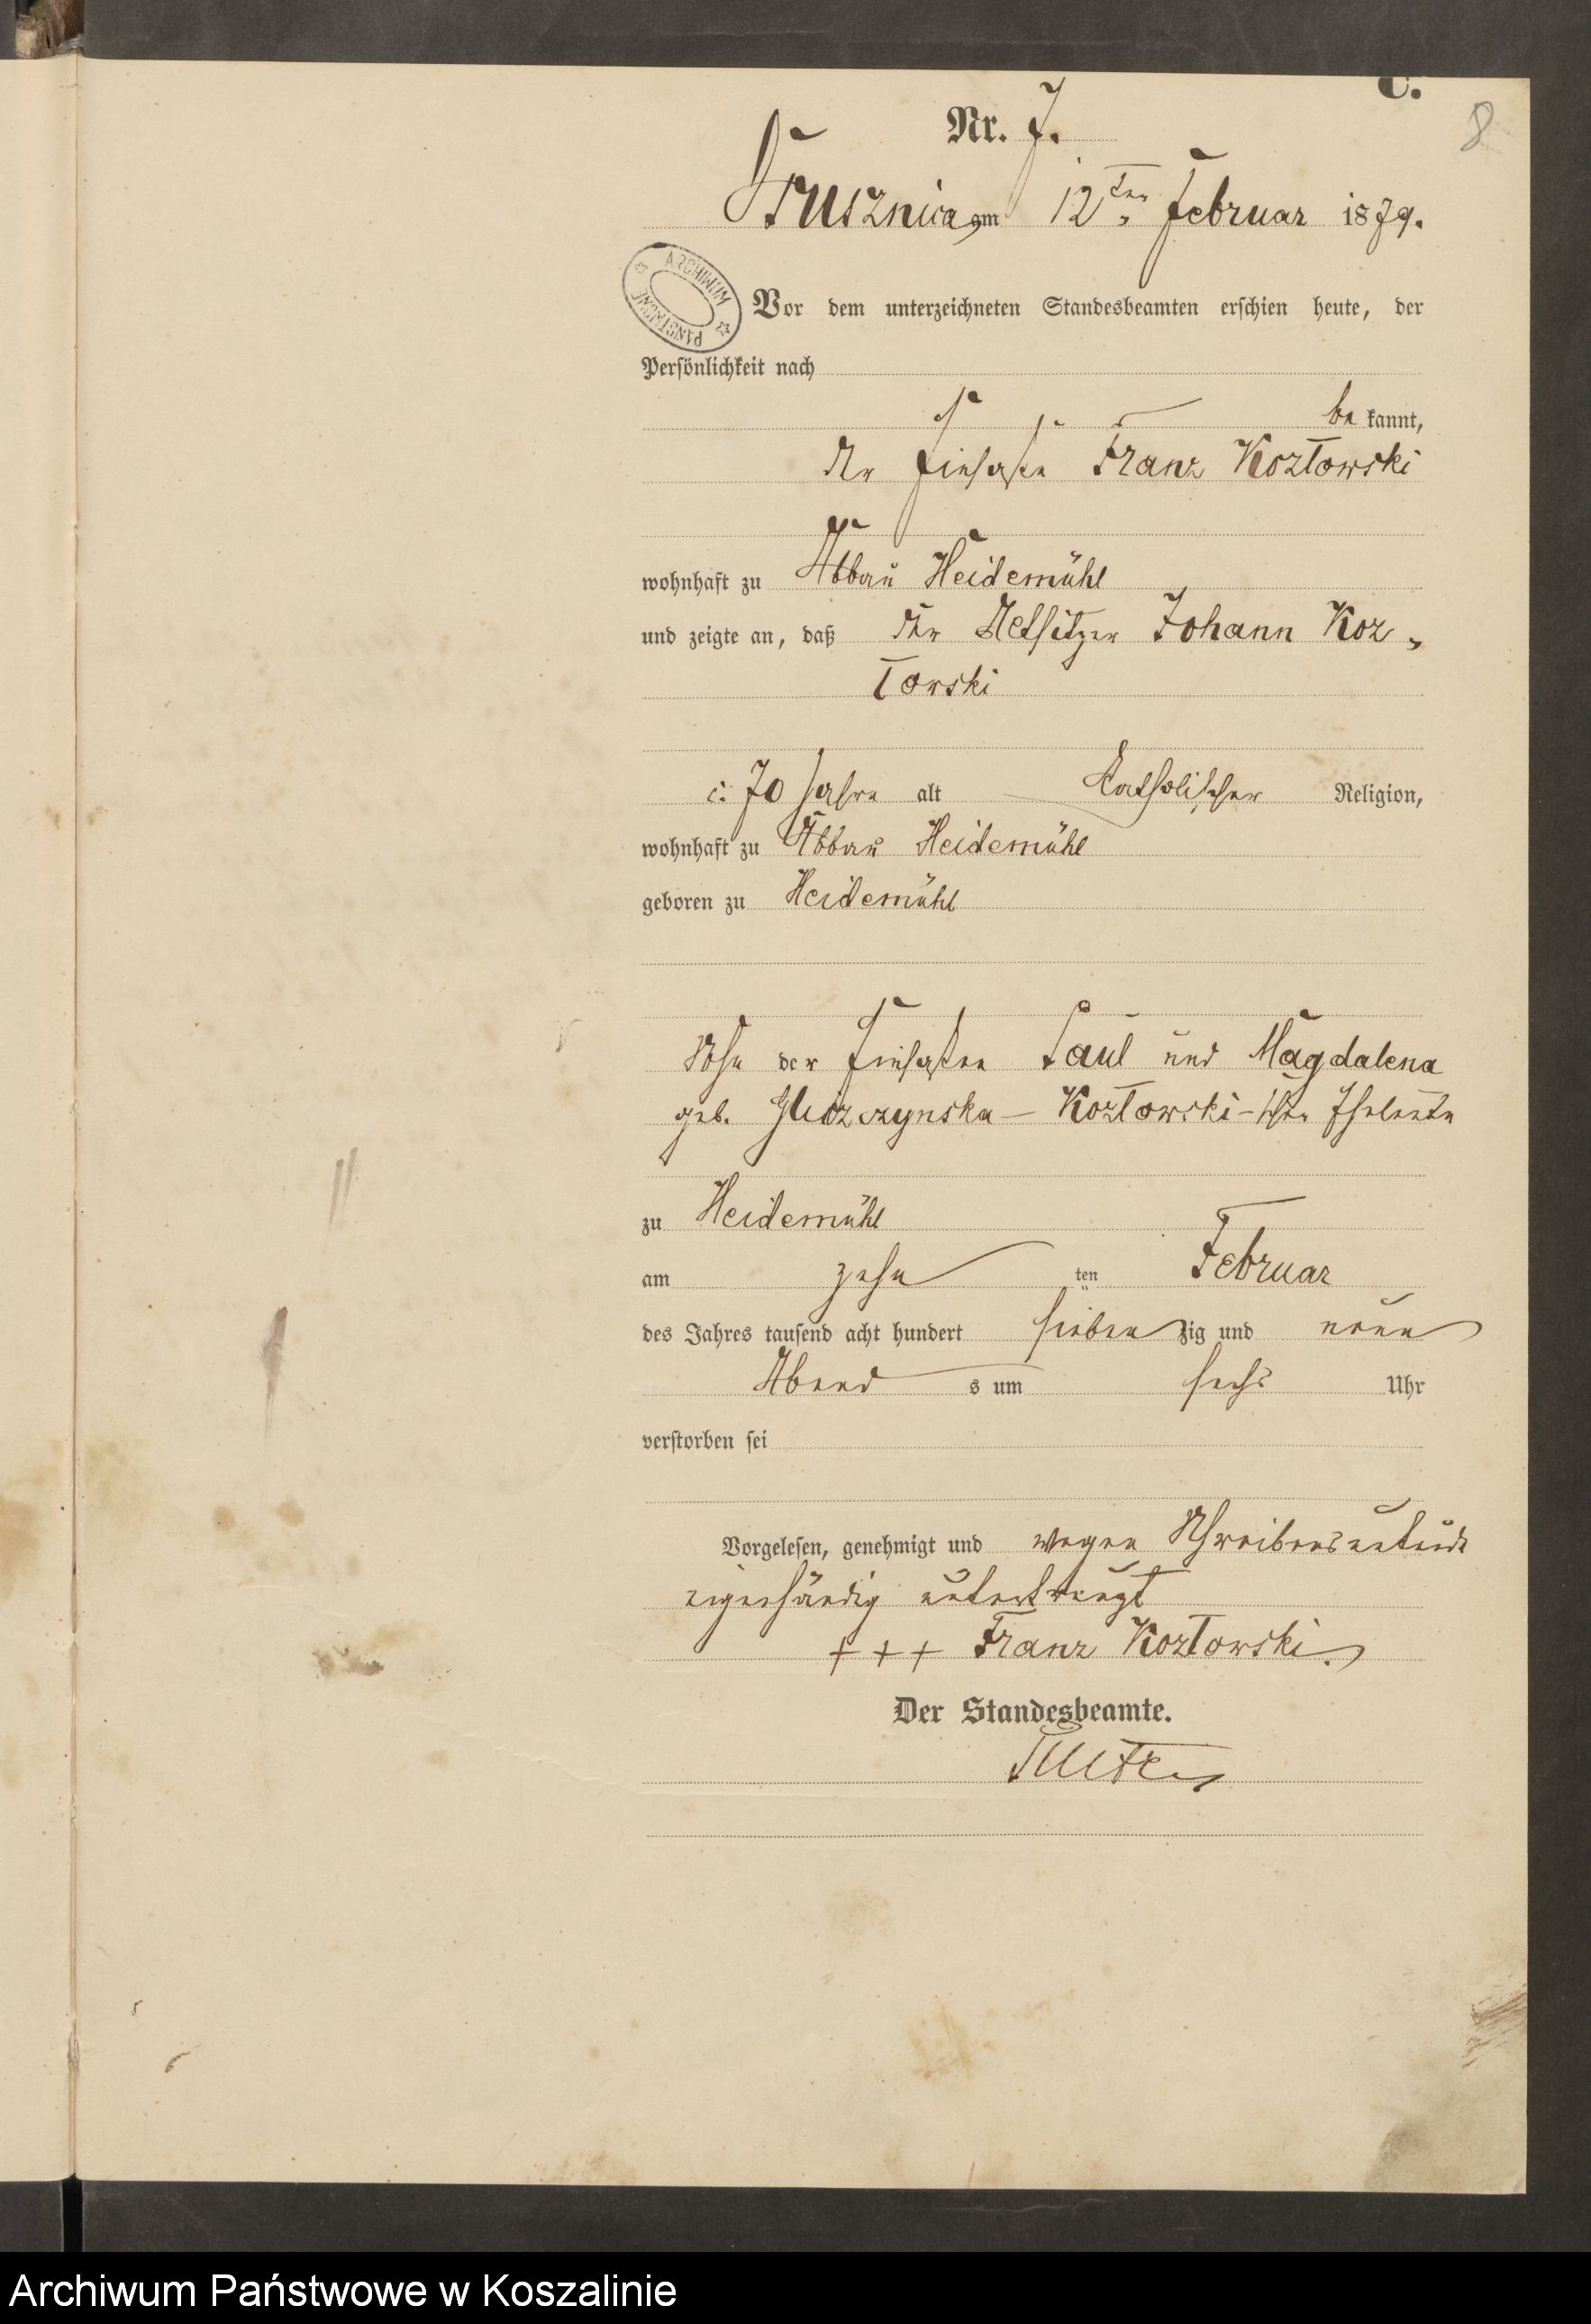 C.
8
Nr. 7.
am 12ten Februar 1879.
ARCHIWUM PAŃSTWOWE
Vor dem unterzeichneten Standesbeamten erschien heute, der
Persönlichkeit nach
be kannt,
der Einsaße Franz Kozłowski
wohnhaft zu Abbau Heidemühl
und zeigte an, daß der Johann Koz-
łowski
c. 70 Jahre alt katholischer Religion,
wohnhaft zu Abbau Heidemühl
geboren zu Heidemühl
Sohn der Einsaßen Paul und Magdalena
geb. Kozłowski-schen Eheleute
zu Heidemühl
am zehn ten Februar
des Jahres tausend acht hundert sieben zig und neun
Abend s um sechs Uhr
verstorben sei
Vorgelesen, genehmigt und wegen Schreibensunkunde
eigenhändig unterkreuzt
+ + + Franz Kozłowski.
Der Standesbeamte.
Archiwum Państwowe w Koszalinie